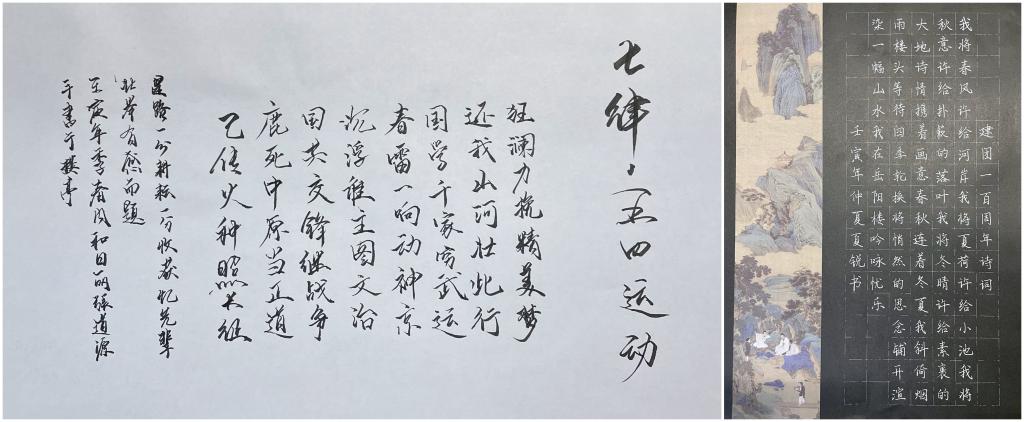 七律、五四运动
狂澜力挽精美梦
还我山河壮此行
国学千家穷武运
春雷一响动神京
沉浮谁主图文治
国共交锋继战争
鹿死中原当正道
乙传火种照长征
一分耕耘一分收获忆先辈
壮举有感而题
壬寅年季春风和日丽张道源
于书于楼亭
建团一百周年诗词
我将春风许给河岸我将夏荷许给小池我将
秋意许给扑簌的落叶我将冬晴许给素裹的
大地诗情携着画意春秋连着冬夏我斜倚烟
雨楼头等待四季轮换将悄然的思念铺开渲
染一幅山水我在岳阳楼吟咏忧乐
壬寅年仲夏夏锐书